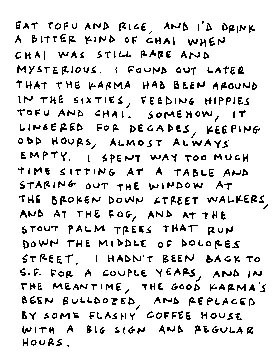 EAT TOFU AND RICE, AND I'D DRINK
A BITTER KIND OF CHAI WHEN
CHAI WAS STILL RARE AND
MYSTERIOUS. I FOUND OUT LATER
THAT THE KARMA HAD BEEN AROUND
IN THE SIXTIES, FEEDING HIPPIES
TOFU AND CHAI. SOMEHOW, IT
LINGERED FOR DECADES, KEEPING
ODD HOURS, ALMOST ALWAYS
EMPTY. I SPENT WAY TOO MUCH
TIME SITTING AT A TABLE AND
STARING OUT THE WINDOW AT
THE BROKEN DOWN STREET WALKERS,
AND AT THE FOG, AND AT THE
STOUT PALM TREES THAT RUN
DOWN THE MIDDLE OF DOLORES
STREET. I HADN'T BEEN BACK TO
S.F. FOR A COUPLE YEARS, AND IN
THE MEANTIME, THE GOOD KARMA'S
BEEN BULLDOZED, AND REPLACED
BY SOME FLASHY COFFEE HOUSE
WITH A BIG SIGN AND REGULAR
HOURS.